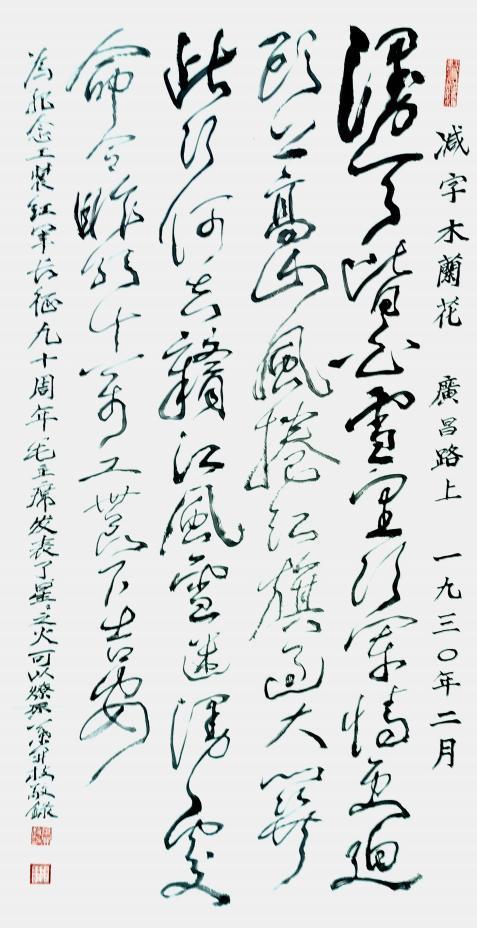 減字木蘭花 廣昌路上 一九三〇年二月
漫天皆白雪里行軍情更迫
頭上高山風捲紅旗過大關
此行何去贛江風雪迷漫處
命令昨頒十萬工農下吉安
為紀念工農紅軍長征九十周年毛主席发表了星星之火可以燎原 敬錄